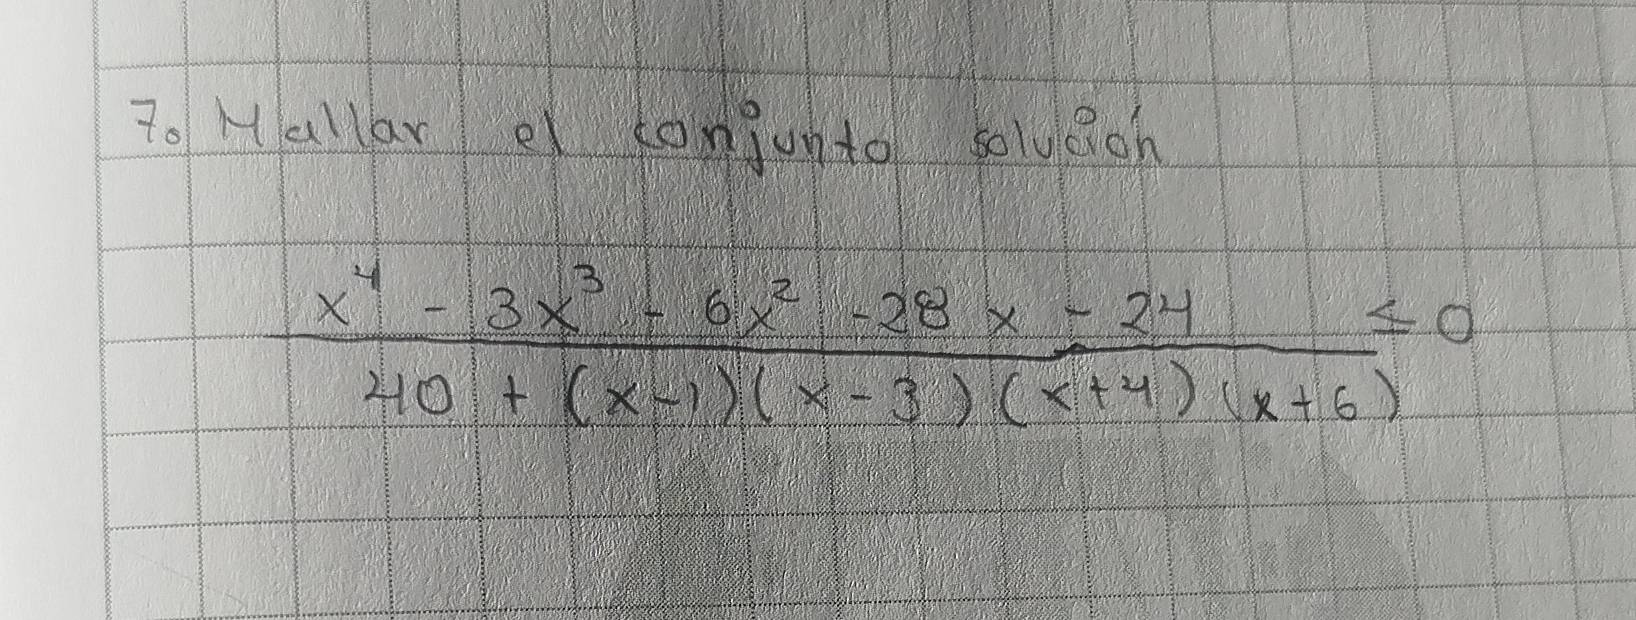 7. Hallar el conjunto solución
x⁴ - 3x³ - 6x² - 28x - 24 ≤ 0
40 + (x-1)(x-3)(x+4)(x+6)